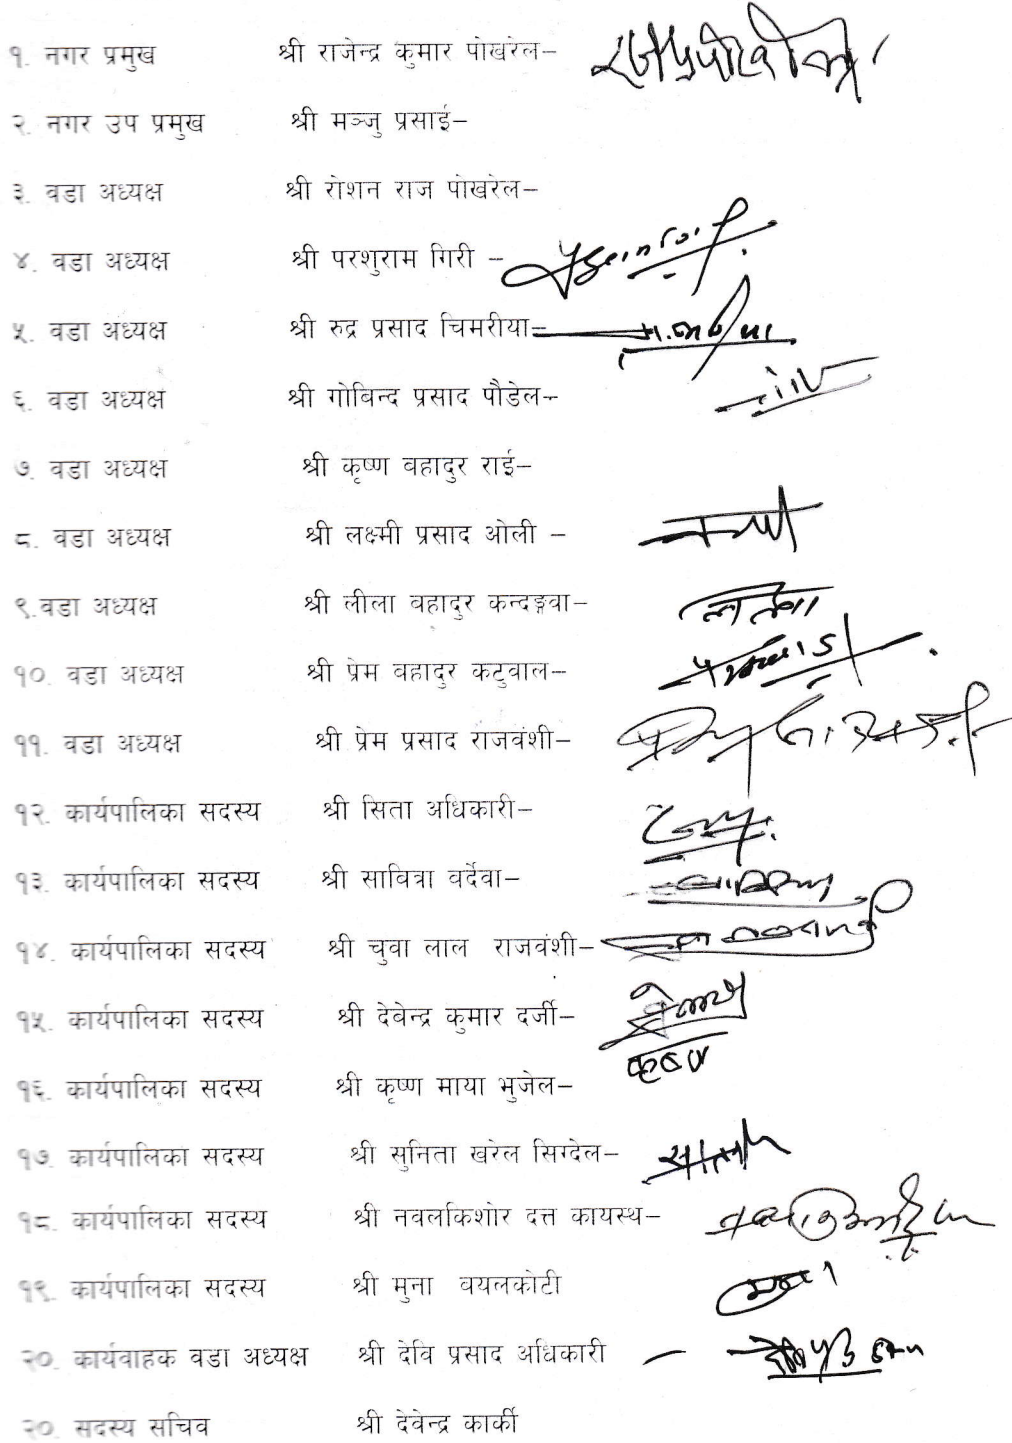 १. नगर प्रमुख श्री राजेन्द्र कुमार पोखरेल–
२. नगर उप प्रमुख श्री मञ्जु प्रसाई–
३. वडा अध्यक्ष श्री रोशन राज पोखरेल–
४. वडा अध्यक्ष श्री परशुराम गिरी –
५. वडा अध्यक्ष श्री रुद्र प्रसाद चिमरीया–
६. वडा अध्यक्ष श्री गोबिन्द प्रसाद पौडेल–
७. वडा अध्यक्ष श्री कृष्ण वहादुर राई–
८. वडा अध्यक्ष श्री लक्ष्मी प्रसाद ओली –
९.वडा अध्यक्ष श्री लीला वहादुर कन्दङ्गवा–
१०. वडा अध्यक्ष श्री प्रेम वहादुर कटुवाल–
११. वडा अध्यक्ष श्री प्रेम प्रसाद राजवंशी–
१२. कार्यपालिका सदस्य श्री सिता अधिकारी–
१३. कार्यपालिका सदस्य श्री सावित्रा वर्देवा–
१४. कार्यपालिका सदस्य श्री चुवा लाल राजवंशी–
१५. कार्यपालिका सदस्य श्री देबेन्द्र कुमार दर्जी–
१६. कार्यपालिका सदस्य श्री कृष्ण माया भुजेल–
१७. कार्यपालिका सदस्य श्री सुनिता खरेल सिग्देल–
१८. कार्यपालिका सदस्य श्री नवलकिशोर दत्त कायस्थ–
१९. कार्यपालिका सदस्य श्री मुना वयलकोटी
२०. कार्यवाहक वडा अध्यक्ष श्री देवि प्रसाद अधिकारी –
२०. सदस्य सचिव श्री देवेन्द्र कार्की